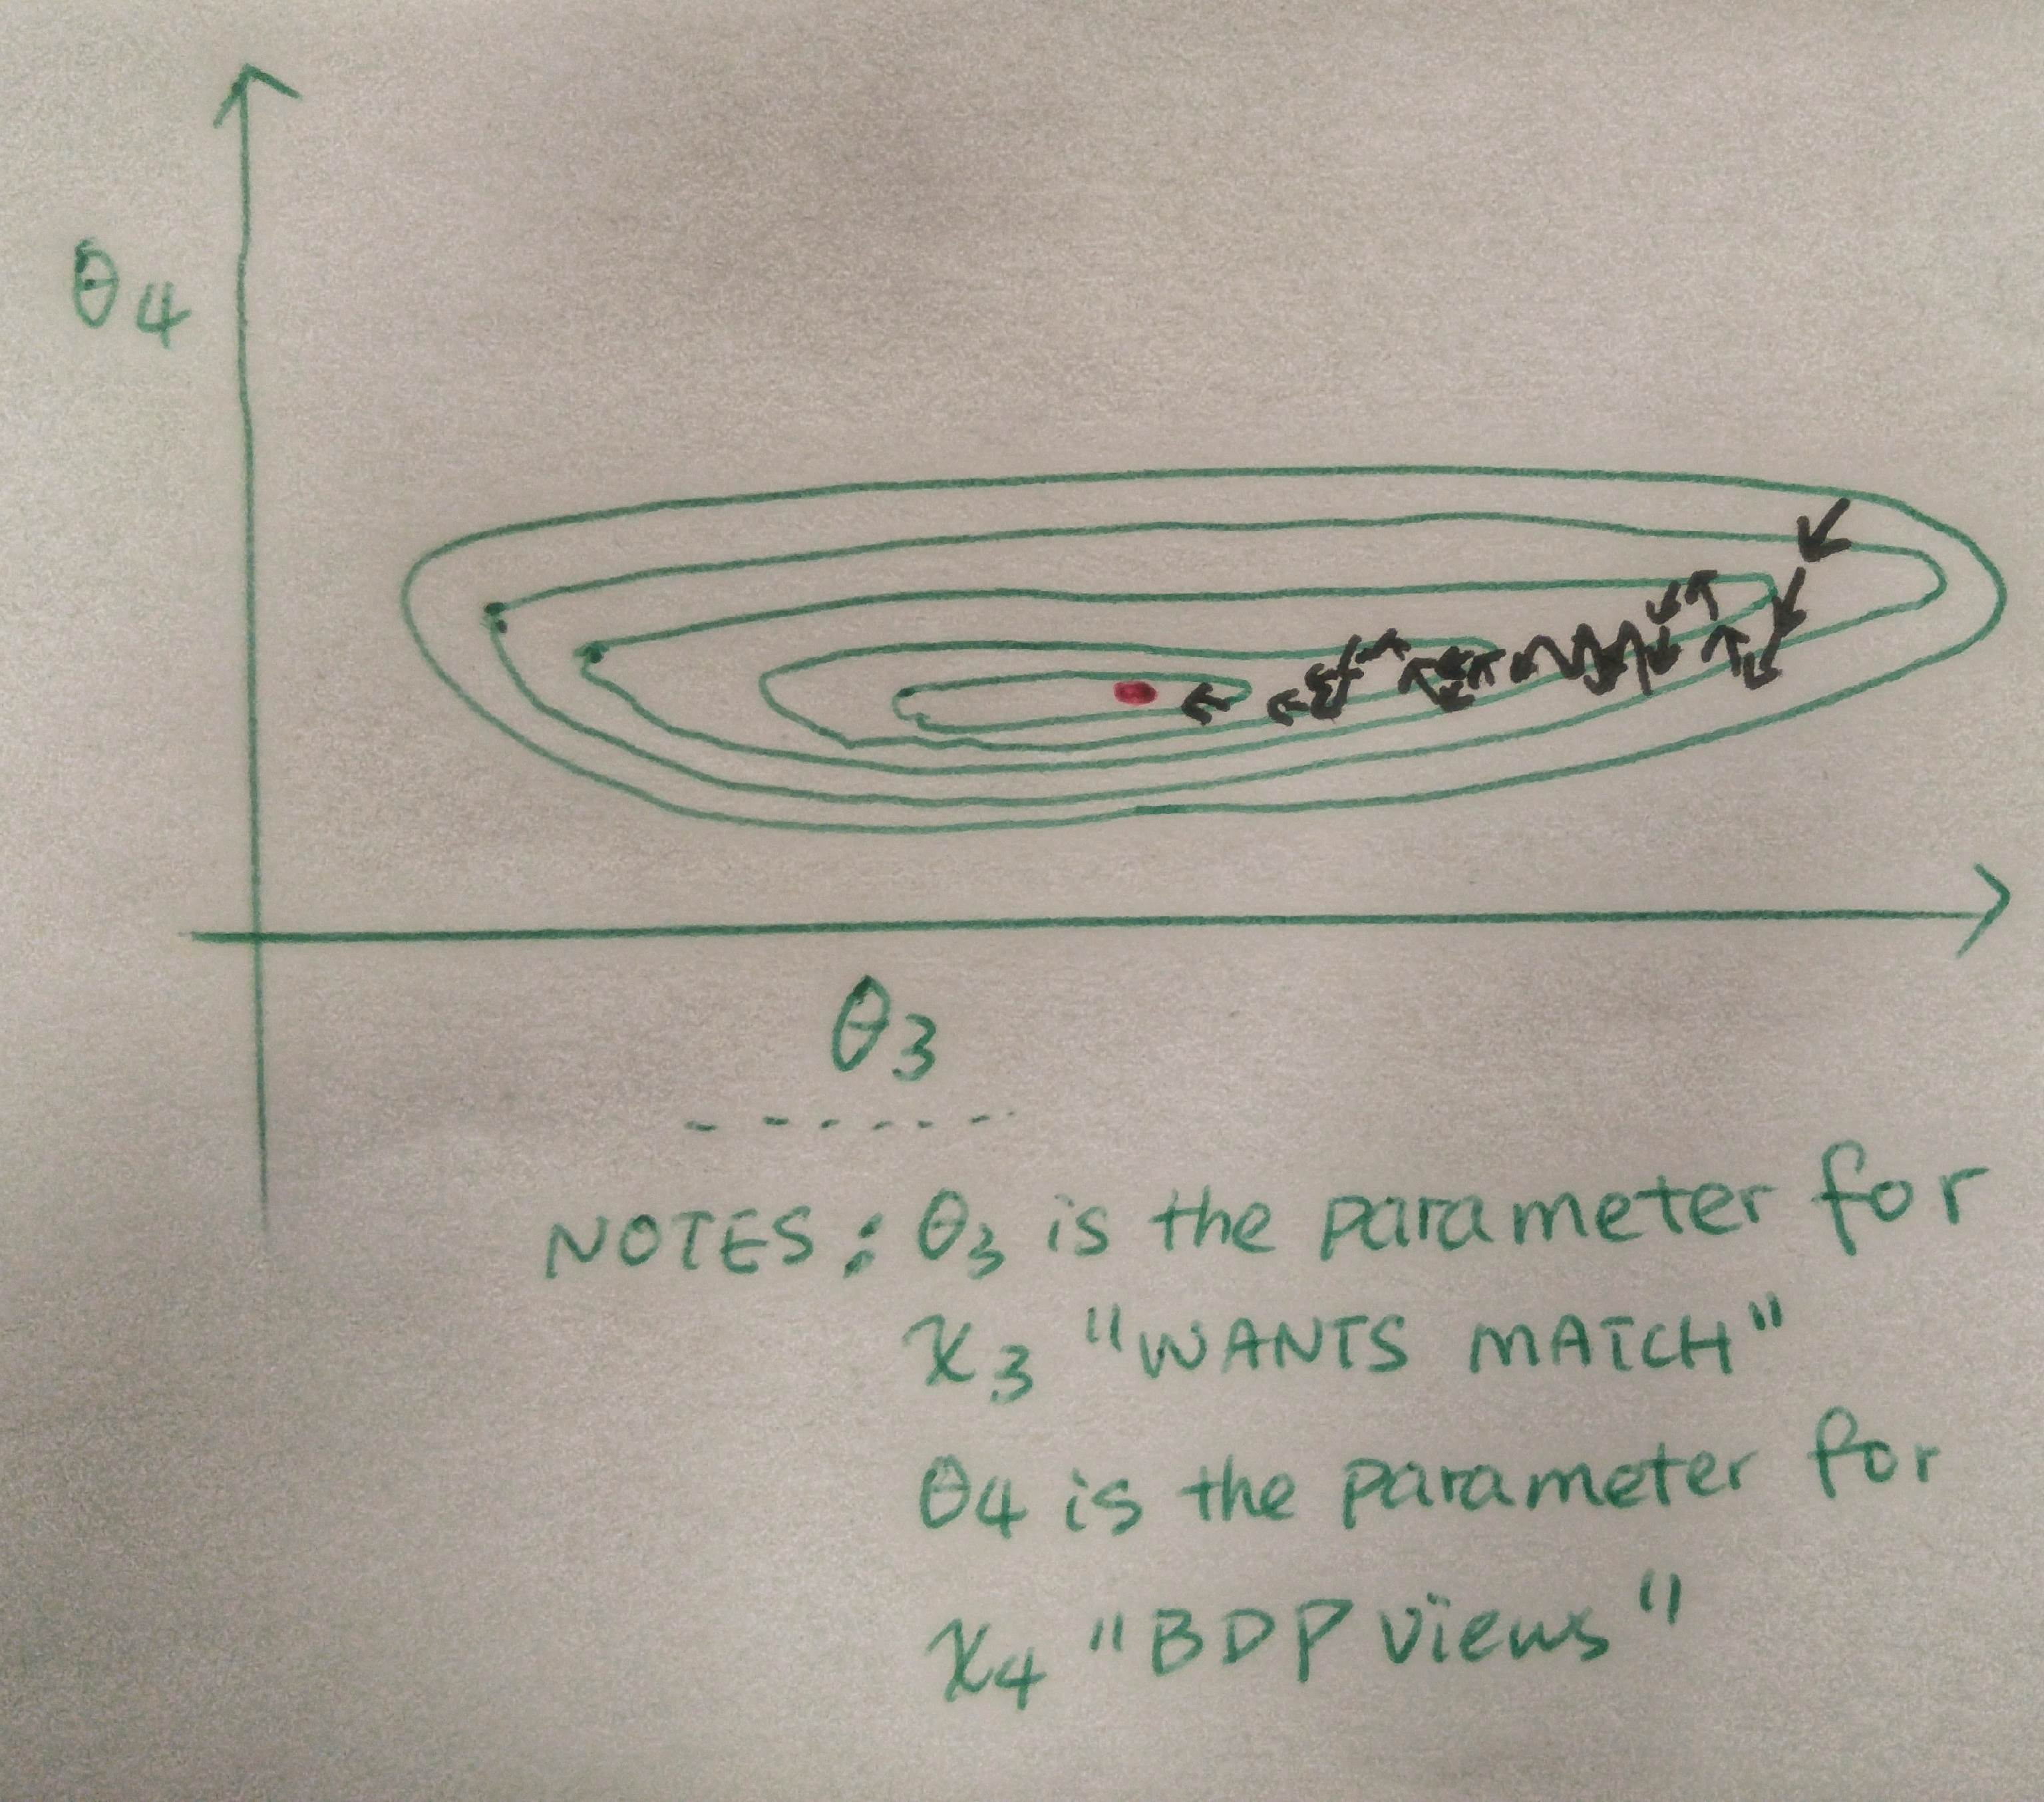 θ4
θ3
NOTES: θ3 is the parameter for
x3 "WANTS MATCH"
θ4 is the parameter for
x4 "BDP views"